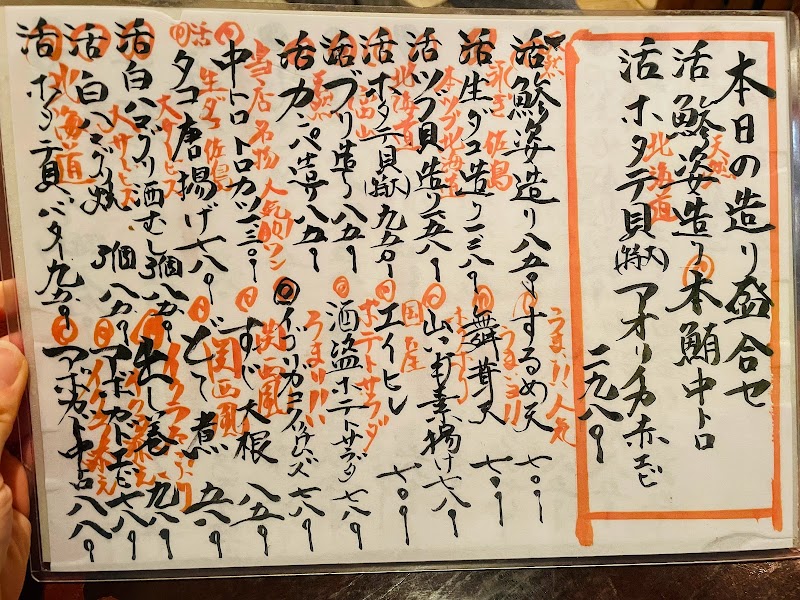 本日の造り盛合せ
天然
活鯵姿造り 本鮪中トロ
北海道
活ホタテ貝(特大)アオリイカ赤エビ
二九八〇
活鯵姿造り 八五〇
佐島
活生ダコ造り 一三八〇
本ツブ北海道
活ツブ貝造り 一五八〇
北海道
活ホタテ貝(特大) 九五〇
富山
活ブリ造り 八五〇
天然
活カンパチ 八五〇
当店名物 人気No.1
中トロトロカツ 一三〇〇
生ダコ佐島
活タコ唐揚げ 七八〇
大サービス
活白ハマグリ酒むし 3個 八五〇
大サービス
活白ハマグリ焼 3個 八五〇
北海道
活ホタテ貝バター 九五〇
うまい!!人気
するめ天 七〇〇
舞茸天 七〇〇
山い打素揚げ 七八〇
国産
エイヒレ 七〇〇
ポテトサラダ
酒盗ポテトサラダ 七八〇
うまい!!!
関西風
すじ大根 八五〇
関西風
どて煮 五八〇
出し巻 九八〇
アボカドエビ 七八〇
アボカド中トロ 八八〇